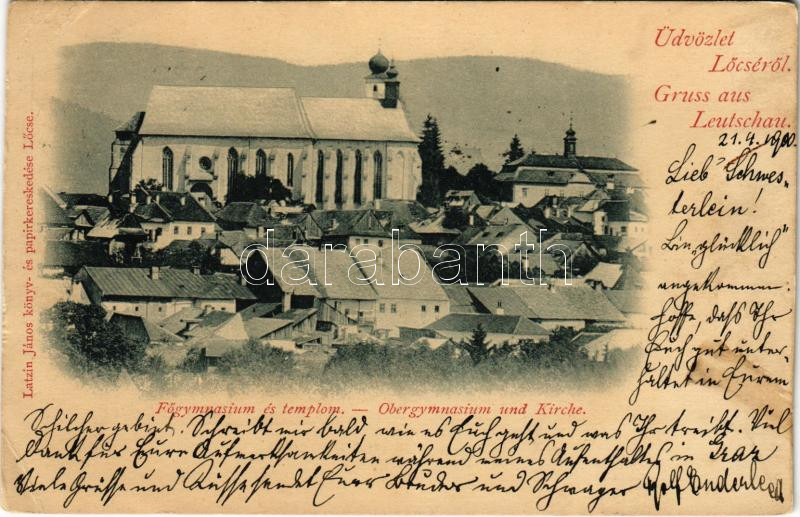 Üdvözlet
Lőcséről.
Gruss aus
Leutschau.
21.4.1900
Lieb' Schwes-
terlein!
Bin "glücklich"
angekommen
hoffe, dass Ihr
Euch gut unter-
haltet in Eurem
Latzin János könyv- és papirkereskedése Lőcse.
darabanth
Főgymnasium és templom. — Obergymnasium und Kirche.
Schilchergebiet. Schreibt mir bald wie es Euch geht und was Ihr treibt. Viel
Dank für Eure Aufmerksamkeiten während meines Aufenthaltes in Graz
Viele Grüsse und Küsse sendet Euer Bruder und Schwager